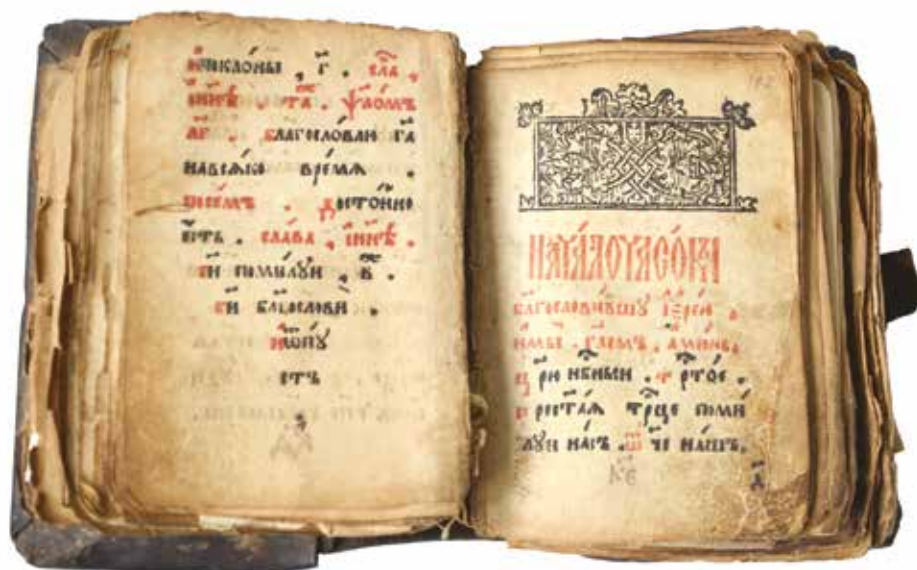 и҆поклóны , г҃ . сла́ ,
и҆ ны́нѣ . та́ . ѱало́мъ
л҃г . благословлю̀ гд҇а
навсѧ́ко вре́мѧ .
посе́мъ . досто́йно
є҆́сть . слáва , и҆ ны́нѣ .
ги поми́лꙋи , в҃ .
ги блгⷭ҇лови̇̀ .
и҆ѿпꙋ
стъ
102
нача́лочасо́мъ
благослови́вшꙋ і҆ере́ю ,
и҆мы̀ гл҃емъ . а҆ми́нь .
цр҃ю нбⷭ҇ныи . трⷭ҇тое .
престаѧ трⷪ҇це поми́
лꙋи на́съ . ѿч҃е на́шъ .